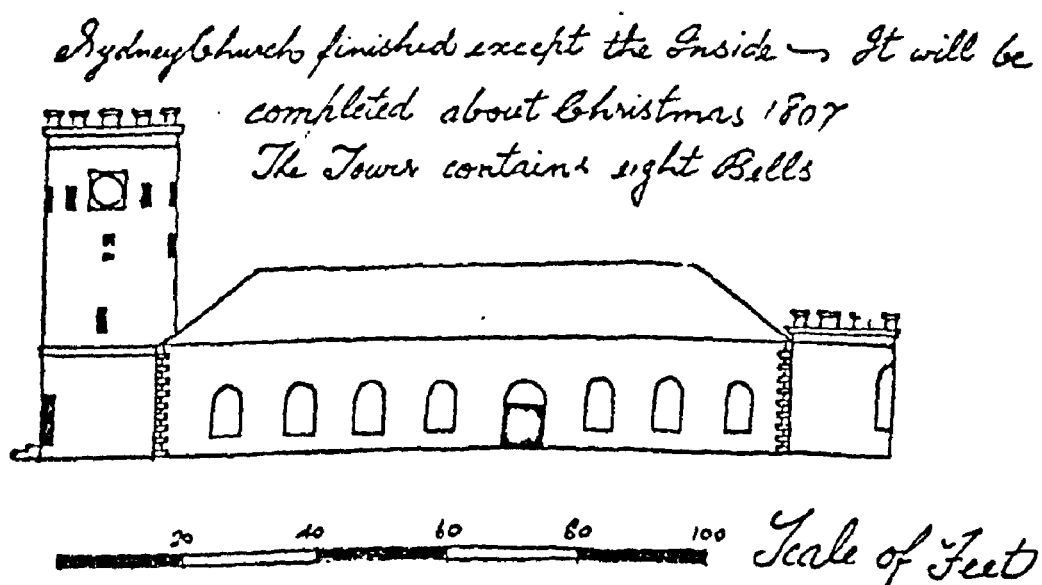 Sydney Church finished except the Inside — It will be
completed about Christmas 1807
The Tower contains eight Bells
20 40 60 80 100
Scale of Feet